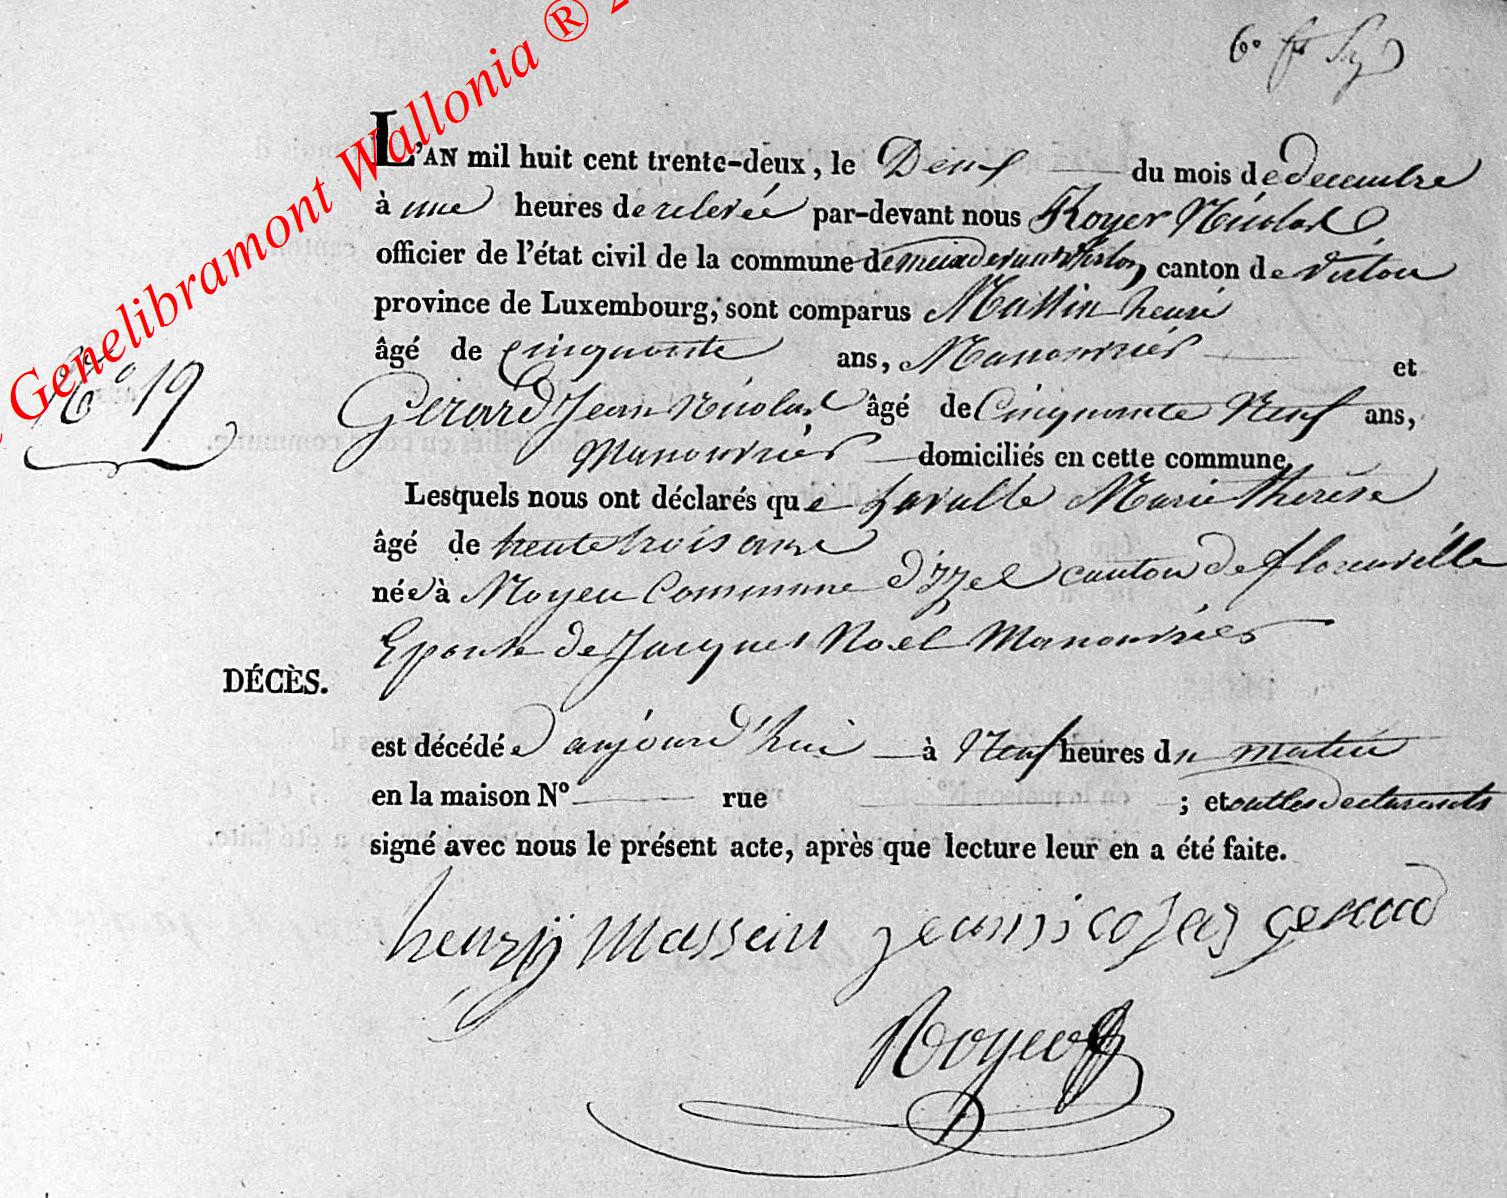 Genelibramont Wallonia ®
6e
L'AN mil huit cent trente-deux, le Deux du mois de decembre
à une heures de relevée par-devant nous Royer Nicolas
officier de l'état civil de la commune de meix devant Virton, canton de virton
province de Luxembourg, sont comparus Massin henri
âgé de Cinquante ans, Manouvrier et
No 19
Gerard Jean Nicolas âgé de Cinquante Neuf ans,
Manouvrier domiciliés en cette commune
Lesquels nous ont déclarés que Lavalle Marie therese
âgé de trente trois ans
née à Moyen Commune d'izel canton de florenville
Epouse de Jacques Noël Manouvrier
DÉCÈS.
est décédée aujourd'hui à Neuf heures du matin
en la maison No rue ; et ont les declarants
signé avec nous le présent acte, après que lecture leur en a été faite.
henrÿ massein jean nicolas gerard
Royer